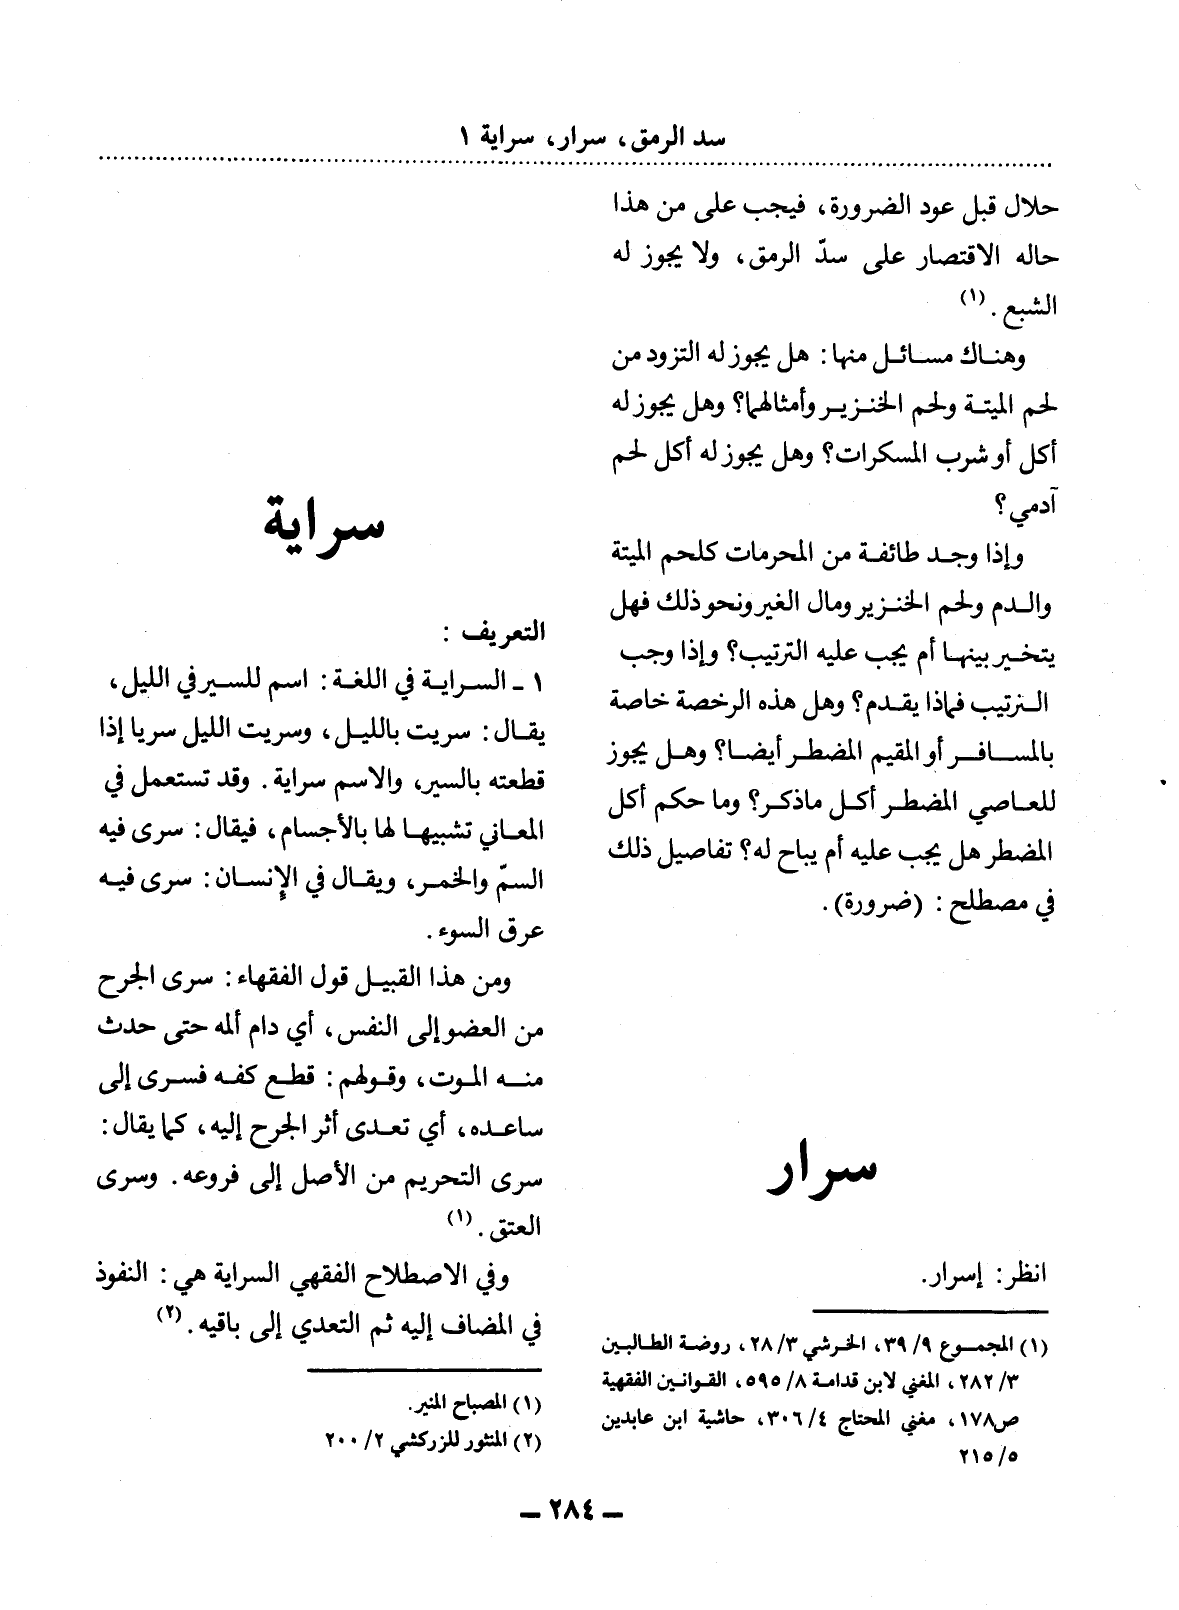 سد الرمق، سرار، سراية ١
حلال قبل عود الضرورة، فيجب على من هذا
حاله الاقتصار على سدّ الرمق، ولا يجوز له
الشبع. (١)
وهناك مسائل منها: هل يجوز له التزود من
لحم الميتة ولحم الخنزير وأمثالهما؟ وهل يجوز له
أكل أو شرب المسكرات؟ وهل يجوز له أكل لحم
آدمي؟
وإذا وجد طائفة من المحرمات كلحم الميتة
والدم ولحم الخنزير ومال الغير ونحو ذلك فهل
يتخير بينها أم يجب عليه الترتيب؟ وإذا وجب
الترتيب فماذا يقدم؟ وهل هذه الرخصة خاصة
بالمسافر أو المقيم المضطر أيضا؟ وهل يجوز
للعاصي المضطر أكل ماذكر؟ وما حكم أكل
المضطر هل يجب عليه أم يباح له؟ تفاصيل ذلك
في مصطلح: (ضرورة).
سرار
انظر: إسرار.
(١) المجموع ٩/ ٣٩، الخرشي ٣/ ٢٨، روضة الطالبين
٣/ ٢٨٢، المغني لابن قدامة ٨/ ٥٩٥، القوانين الفقهية
ص١٧٨، مغني المحتاج ٤/ ٣٠٦، حاشية ابن عابدين
٥/ ٢١٥
سراية
التعريف:
١ - السراية في اللغة: اسم للسير في الليل،
يقال: سريت بالليل، وسريت الليل سريا إذا
قطعته بالسير، والاسم سراية. وقد تستعمل في
المعاني تشبيها لها بالأجسام، فيقال: سرى فيه
السمّ والخمر، ويقال في الإنسان: سرى فيه
عرق السوء.
ومن هذا القبيل قول الفقهاء: سرى الجرح
من العضو إلى النفس، أي دام ألمه حتى حدث
منه الموت، وقولهم: قطع كفه فسرى إلى
ساعده، أي تعدى أثر الجرح إليه، كما يقال:
سرى التحريم من الأصل إلى فروعه. وسرى
العتق. (١)
وفي الاصطلاح الفقهي السراية هي: النفوذ
في المضاف إليه ثم التعدي إلى باقيه. (٢)
(١) المصباح المنير.
(٢) المنثور للزركشي ٢/ ٢٠٠
ـ ٢٨٤ ـ